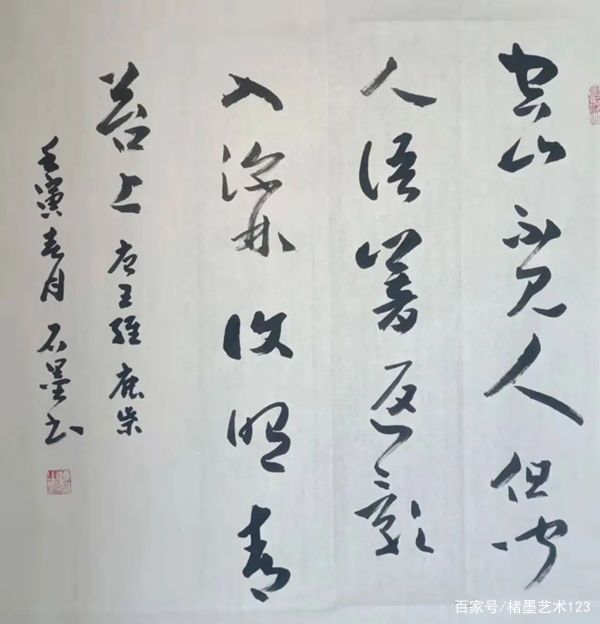 空山不見人但聞
人語響返影
入深林復照青
苔上 唐王維鹿柴
壬寅春月 石墨书
百家号/楮墨艺术123